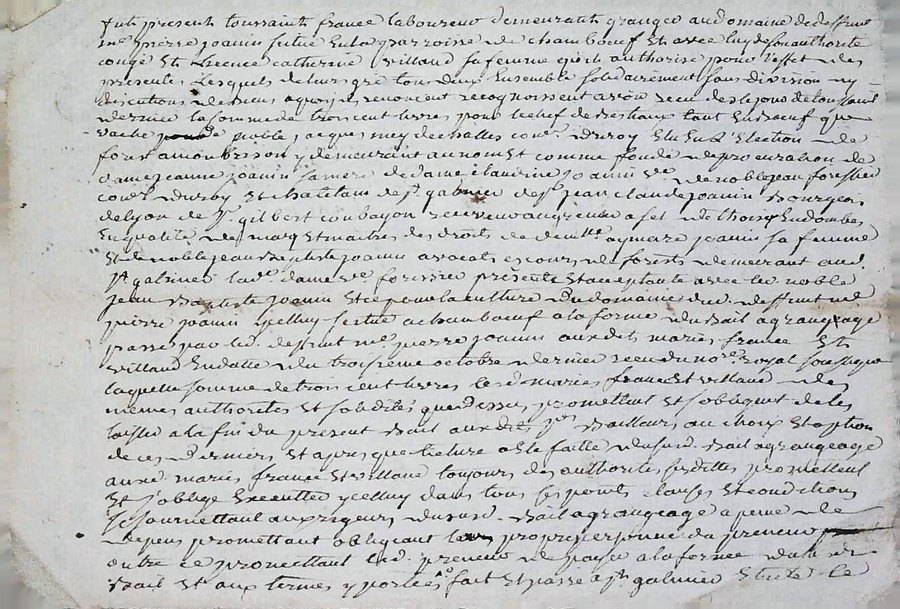 fut present toussaint france laboureur demeurant granger au domaine de deffunt
me pierre joanin scitue en la parroisse de chambœuf Et avec luy de son authorité
congé Et licence catherine villand sa femme qu'il authorise pour l'effet des
presentes Lesquels de leurs gré tous deux Ensemble solidairement sans division ny
discution de biens a quoy ils renoncent recognoissent avoir receu des le jour de toussaint
dernier la somme de trois cent livres pour le chef de bestiaux tant En bœuf que
vache de noble jacques mey de challes coner du roy Elu En L'Election de
forest a monbrison y demeurant au nom Et comme fondé de procuration de
dame jeanne joanin sa mere de dame claudine joanin ve de noble jean forissier
coner du roy Et chatelain de st galmier de sr jean claude joanin Bourgeois
de lyon de sr gilbert coubayon receveur au grenier a sel de thoissy En dombes
En qualité de mary Et maitre des droits de demlle aymare joanin sa femme
Et de noble jean Baptiste joanin avocat es cours de forests demeurant aud
st galmier lad. dame ve forissier presente Et acceptante avec led noble
jean Baptiste joanin Et ce pour la culture du domaine dud deffunt me
pierre joanin ycelluy scitué a chambœuf a la forme du Bail a grangeage
passé par led. deffunt me pierre joanin auxdits mariés france Et
villand En datte du troisieme octobre dernier receu du nore Royal soussigné
laquelle somme de trois cent livres lesd mariés france Et villand des
mêmes authorités Et solidité que dessus promettent Et s'obligent de les
laisser a la fin du present Bail auxdits srs Bailleurs au choix Et option
de ces derniers Et apres que lecture a Eté faitte dususd. Bail a grangeage
auxd mariés france Et villand toujours des authorités susdittes promettent
Et s'oblige Executter ycelluy dans tous ses points clauses Et conditions
se soumettant aux rigueurs dususd. Bail a grangeage a peine de
depens promettant obligeant propre personne du preneur
outre ce promettant led. preneur de payer a la forme dud
Bail Et aux termes y portées fait Et passé a st galmier Etude le